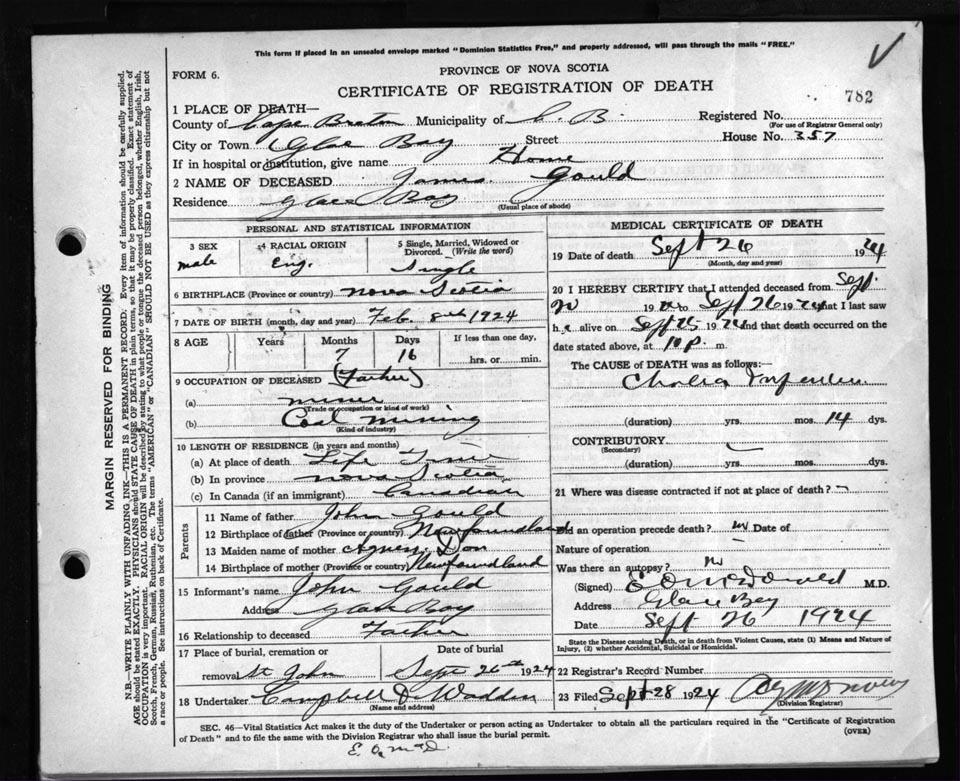 This form if placed in an unsealed envelope marked "Dominion Statistics Free," and properly addressed, will pass through the mails "FREE."
FORM 6.
PROVINCE OF NOVA SCOTIA
CERTIFICATE OF REGISTRATION OF DEATH
782
1 PLACE OF DEATH—
County of Cape Breton Municipality of C. B. Registered No.
(For use of Registrar General only)
City or Town Glace Bay Street House No. 357
If in hospital or institution, give name Home
2 NAME OF DECEASED James Gould
Residence Glace Bay
(Usual place of abode)
PERSONAL AND STATISTICAL INFORMATION
3 SEX
male
4 RACIAL ORIGIN
Eng.
5 Single, Married, Widowed or Divorced. (Write the word)
Single
6 BIRTHPLACE (Province or country) Nova Scotia
7 DATE OF BIRTH (month, day and year) Feb. 8th 1924
8 AGE Years Months Days If less than one day,
7 16 hrs. or min.
9 OCCUPATION OF DECEASED (Father)
(a) miner
(Trade or occupation or kind of work)
(b) Coal mining
(Kind of industry)
10 LENGTH OF RESIDENCE (in years and months)
(a) At place of death Life Time
(b) In province Nova Scotia
(c) In Canada (if an immigrant) Canadian
Parents
11 Name of father John Gould
12 Birthplace of father (Province or country) Newfoundland
13 Maiden name of mother Agnes
14 Birthplace of mother (Province or country) Newfoundland
15 Informant's name John Gould
Address Glace Bay
16 Relationship to deceased Father
17 Place of burial, cremation or removal St John
Date of burial
Sept 26th 1924
18 Undertaker Campbell & Wadden
(Name and address)
MEDICAL CERTIFICATE OF DEATH
19 Date of death Sept 26 1924
(Month, day and year)
20 I HEREBY CERTIFY that I attended deceased from Sept
19 to Sept 26 1924 that I last saw
h. alive on Sept 25 1924 and that death occurred on
date stated above, at 10 p. m.
The CAUSE of DEATH was as follows:
Cholera Infantum
(duration) yrs. mos. 14 dys.
CONTRIBUTORY
(Secondary)
(duration) yrs. mos. dys.
21 Where was disease contracted if not at place of death?
Did an operation precede death? No Date of
Nature of operation
Was there an autopsy? No
(Signed) M.D.
Address Glace Bay
Date Sept 26 1924
State the Disease causing Death, or in death from Violent Causes, state (1) Means and Nature of Injury, (2) whether Accidental, Suicidal or Homicidal.
22 Registrar's Record Number
23 Filed Sept 28 1924
(Division Registrar)
SEC. 46—Vital Statistics Act makes it the duty of the Undertaker or person acting as Undertaker to obtain all the particulars required in the "Certificate of Registration
of Death" and to file the same with the Division Registrar who shall issue the burial permit.
(OVER)
MARGIN RESERVED FOR BINDING
N.B.—WRITE PLAINLY WITH UNFADING INK—THIS IS A PERMANENT RECORD. Every item of information should be carefully supplied.
AGE should be stated EXACTLY. PHYSICIANS should STATE CAUSE OF DEATH in plain terms, so that it may be properly classified. Exact statement of
OCCUPATION is very important. RACIAL ORIGIN will be described by stating to what people or tongue the deceased person belonged, whether English, Irish,
Scotch, French, German, Russian, Ruthenian, etc. The terms "AMERICAN" or "CANADIAN" SHOULD NOT BE USED as they express citizenship but not
a race or people. See instructions on back of Certificate.